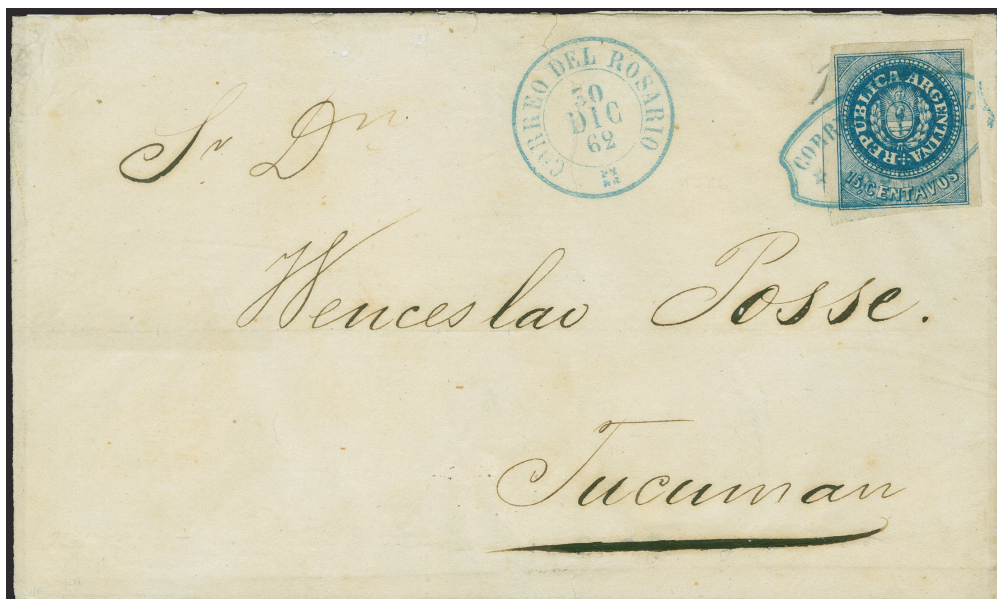 CORREO DEL ROSARIO
30
DIC
62
REPUBLICA ARGENTINA
15, CENTAVOS
CORR
Sr Dn
Wenceslao Posse.
Tucuman